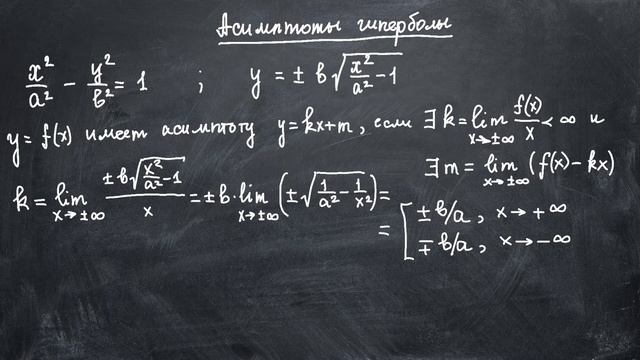 Асимптоты гиперболы
x²/a² − y²/b² = 1 ; y = ± b√(x²/a² − 1)
y = f(x) имеет асимптоту y = kx + m, если ∃ k = lim_{x→±∞} f(x)/x < ∞ и
∃ m = lim_{x→±∞} (f(x) − kx)
k = lim_{x→±∞} (± b√(x²/a² − 1))/x = ± b · lim_{x→±∞} (± √(1/a² − 1/x²)) =
= [ ± b/a , x → + ∞
∓ b/a , x → − ∞